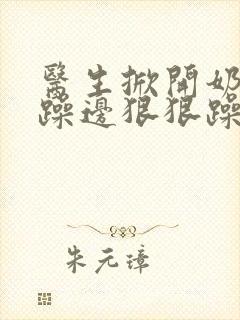 醫生掀開奶
躁邊狠狠躁
朱元璋